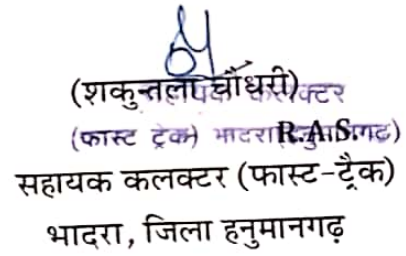 (शकुन्तला चौधरी)
R.A.S.
(फास्ट ट्रेक) भादरा
सहायक कलक्टर (फास्ट-ट्रैक)
भादरा, जिला हनुमानगढ़